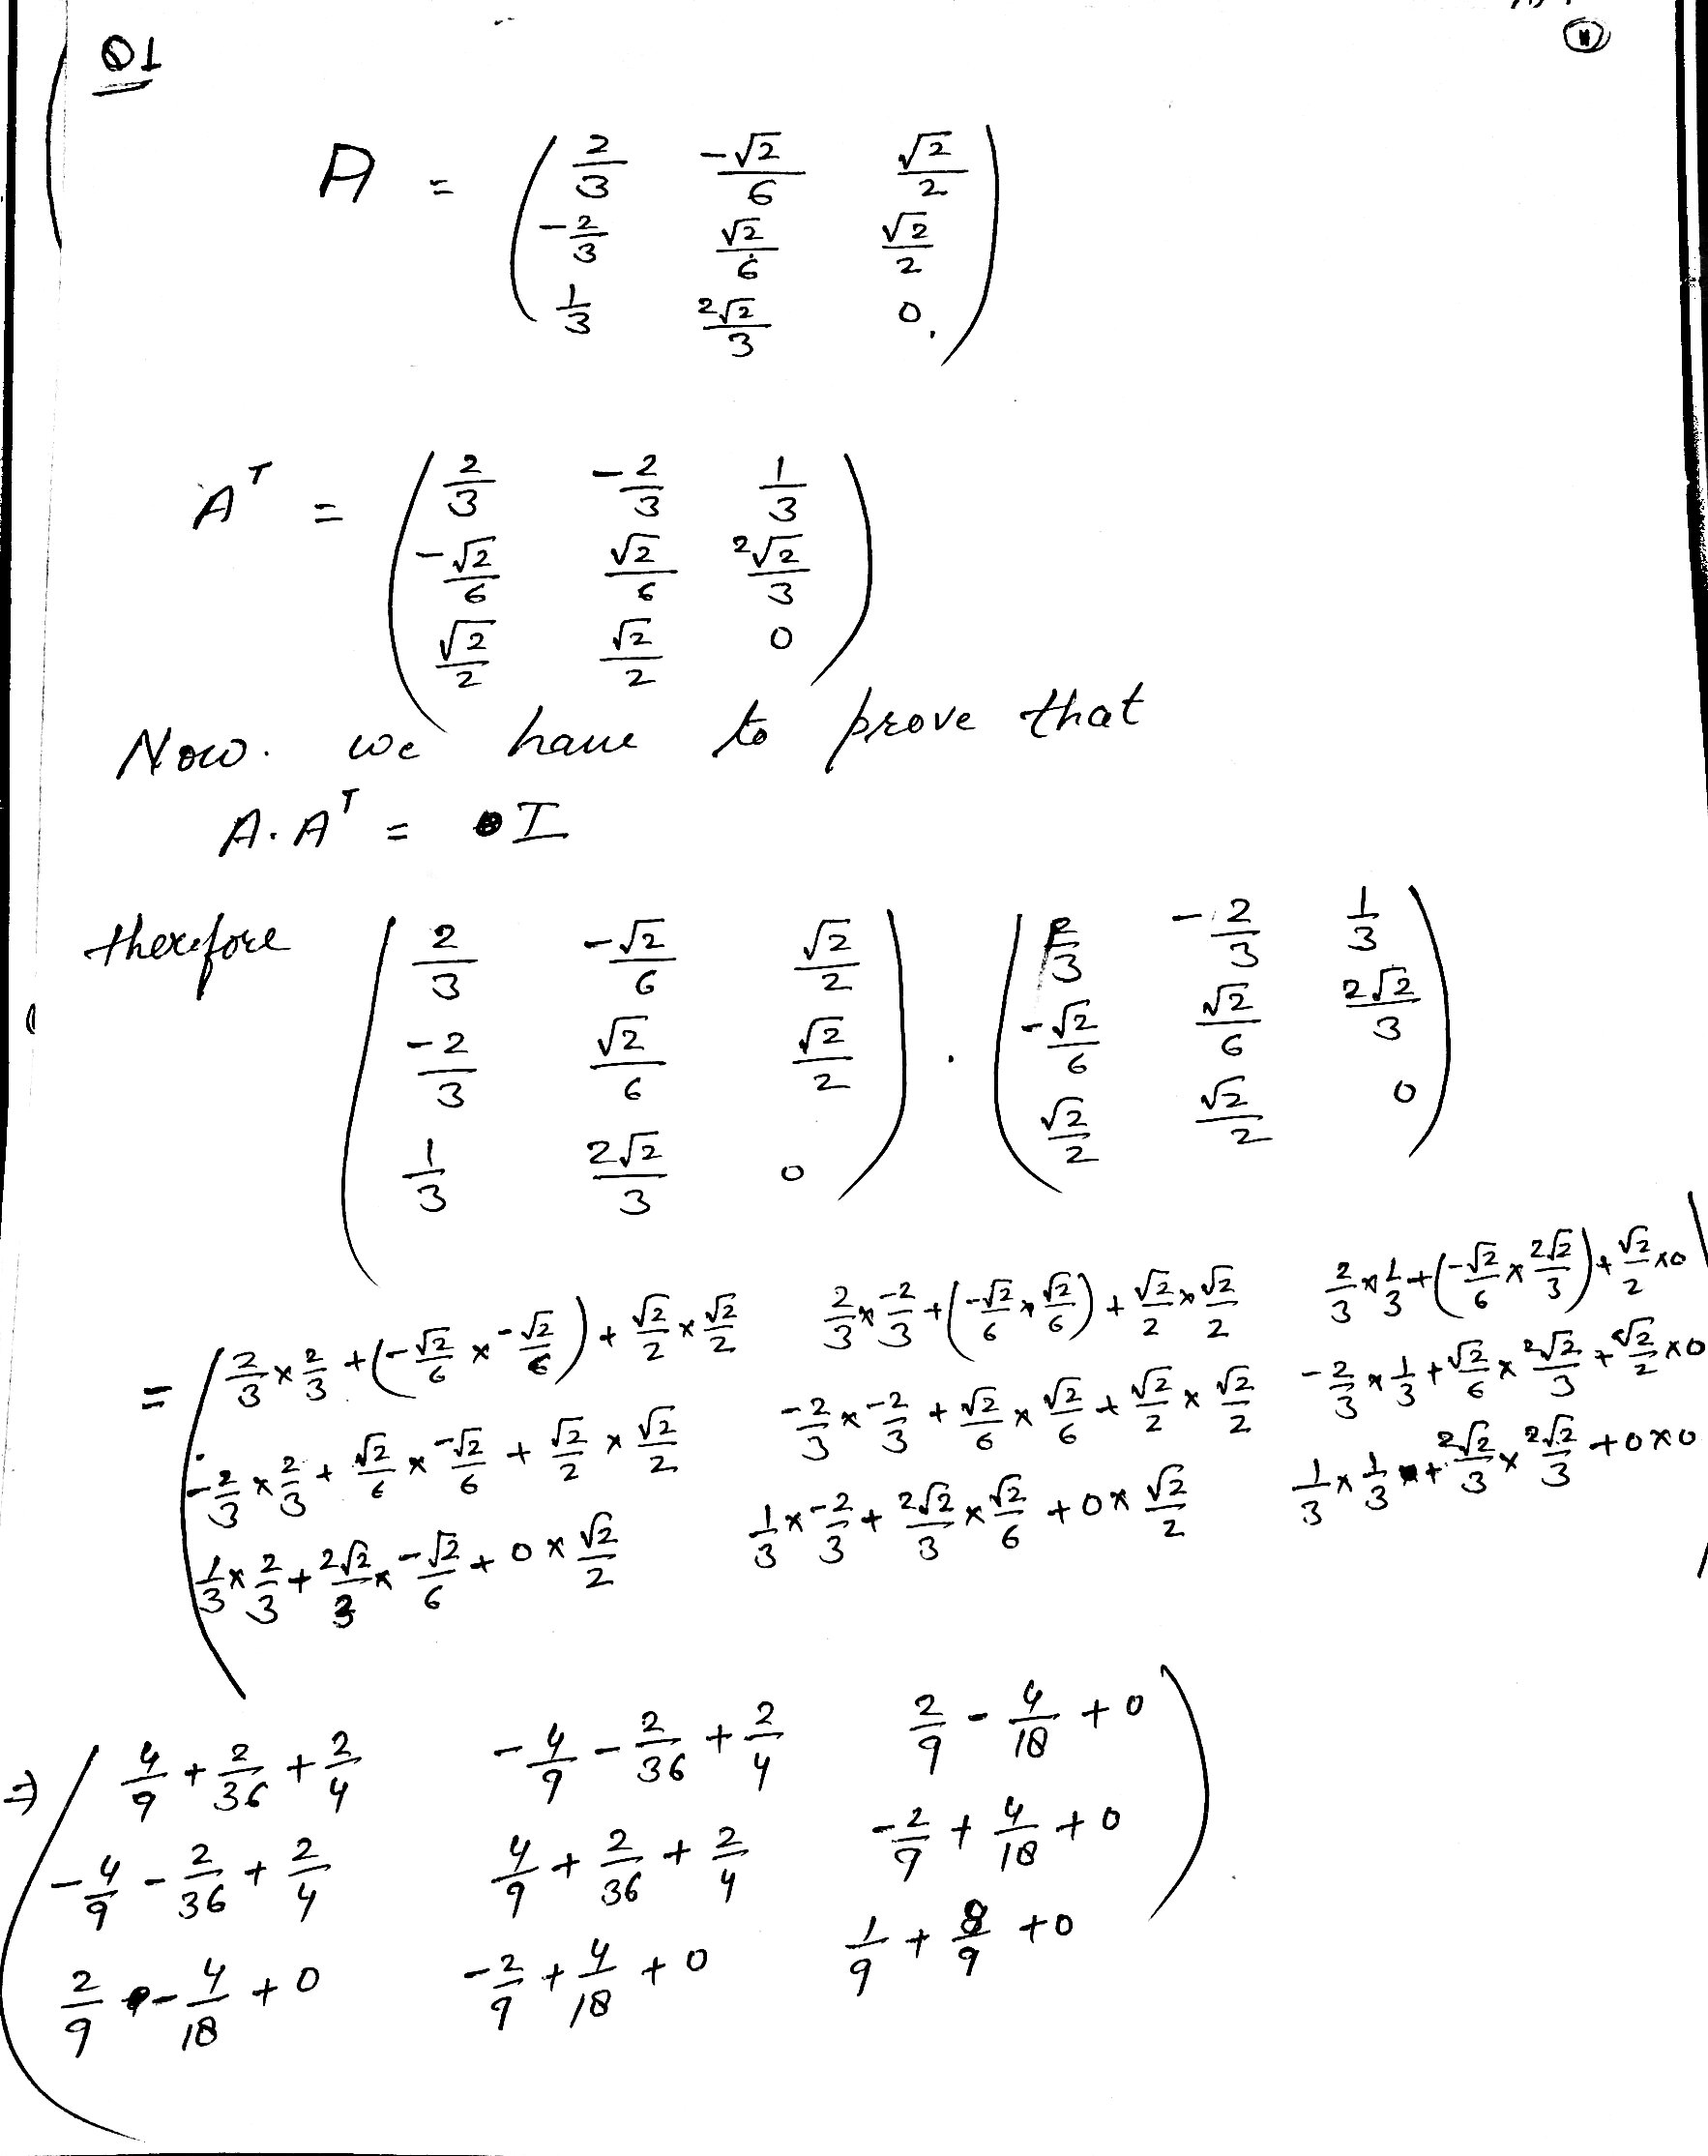 Q1
A = ( 2/3 -√2/6 √2/2
-2/3 √2/6 √2/2
1/3 2√2/3 0. )
A^T = ( 2/3 -2/3 1/3
-√2/6 √2/6 2√2/3
√2/2 √2/2 0 )
Now. we have to prove that
A.A^T = I
therefore ( 2/3 -√2/6 √2/2 ) . ( 2/3 -2/3 1/3 )
( -2/3 √2/6 √2/2 ) ( -√2/6 √2/6 2√2/3 )
( 1/3 2√2/3 0 ) ( √2/2 √2/2 0 )
= ( 2/3 × 2/3 + (-√2/6 × -√2/6) + √2/2 × √2/2 2/3 × -2/3 + (-√2/6 × √2/6) + √2/2 × √2/2 2/3 × 1/3 + (-√2/6 × 2√2/3) + √2/2 × 0
-2/3 × 2/3 + √2/6 × -√2/6 + √2/2 × √2/2 -2/3 × -2/3 + √2/6 × √2/6 + √2/2 × √2/2 -2/3 × 1/3 + √2/6 × 2√2/3 + √2/2 × 0
1/3 × 2/3 + 2√2/3 × -√2/6 + 0 × √2/2 1/3 × -2/3 + 2√2/3 × √2/6 + 0 × √2/2 1/3 × 1/3 + 2√2/3 × 2√2/3 + 0×0 )
⇒ ( 4/9 + 2/36 + 2/4 -4/9 - 2/36 + 2/4 2/9 - 4/18 + 0
-4/9 - 2/36 + 2/4 4/9 + 2/36 + 2/4 -2/9 + 4/18 + 0
2/9 - 4/18 + 0 -2/9 + 4/18 + 0 1/9 + 8/9 + 0 )